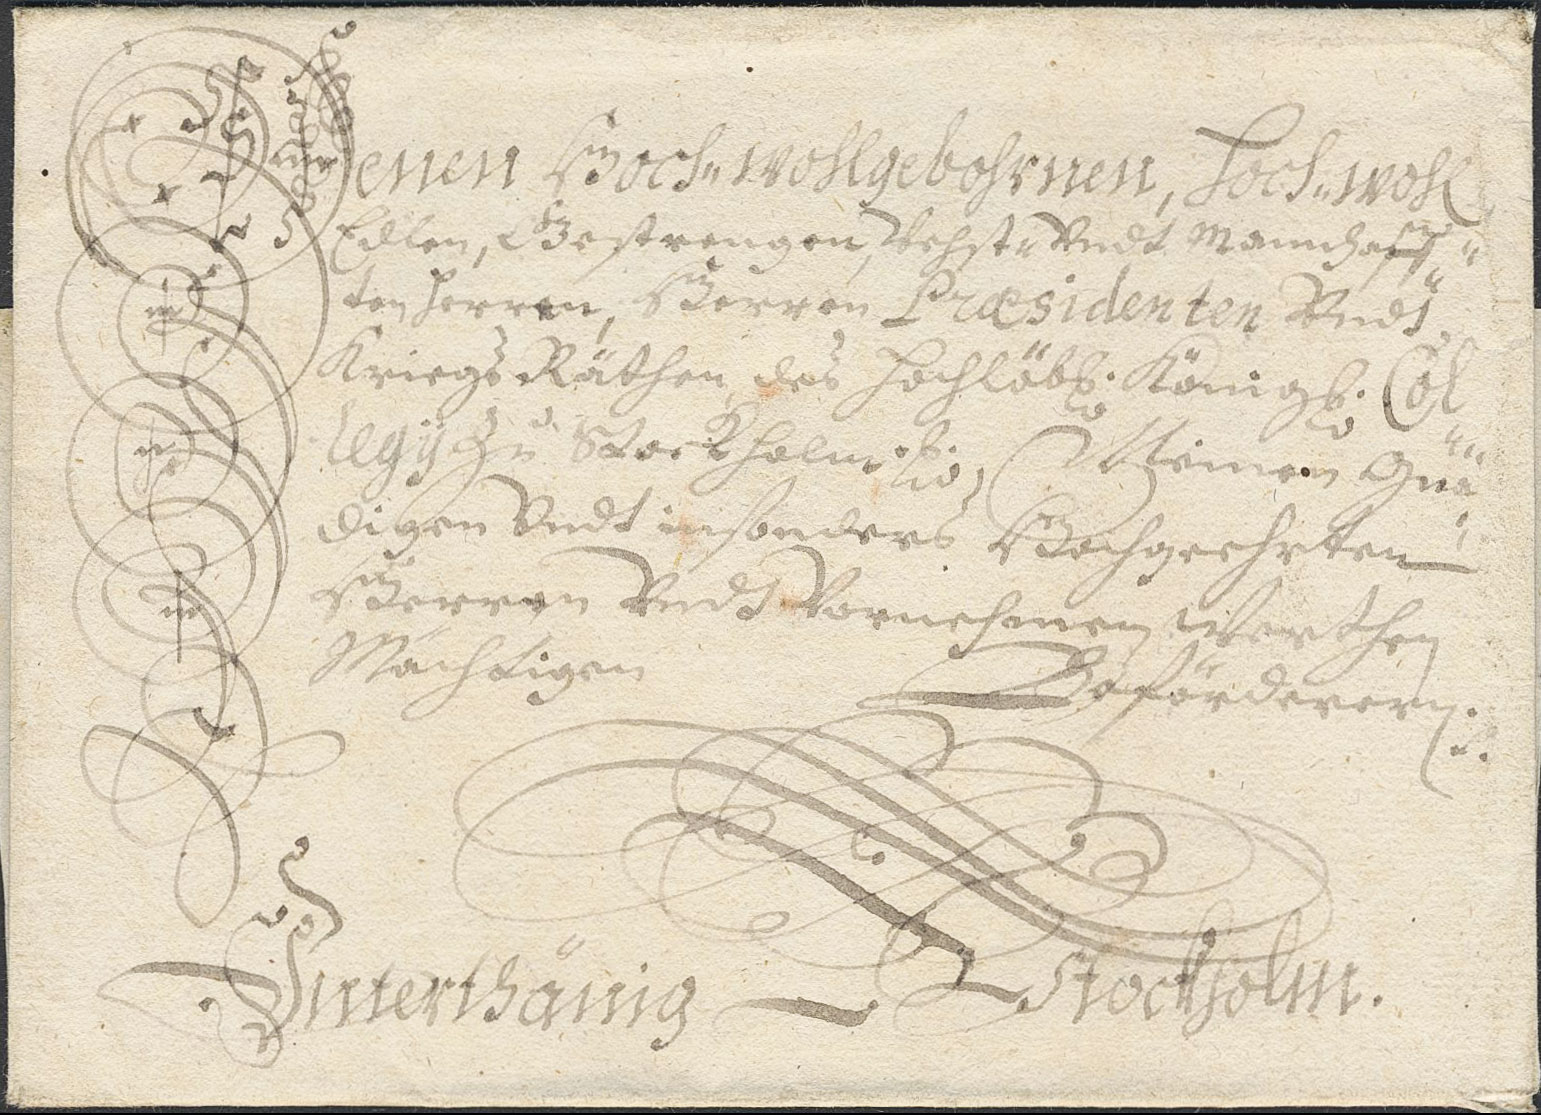 Denen Hoch= wohlgebohrnen, Hoch= wohl
Edlen, Gestrengen, Vehst= Vndt Mannhaff=
ten Herren, Herren Præsidenten Vndt
Kriegs Räthen des Hochlöbl. Königl. Col
legij zu Stockholm Meinen Gnä=
digen Vndt insonders Hochgeehrten
Herren Vndt Vornehmen Werthen
Mächtigen Beförderern.
Unterthänig Stockholm.